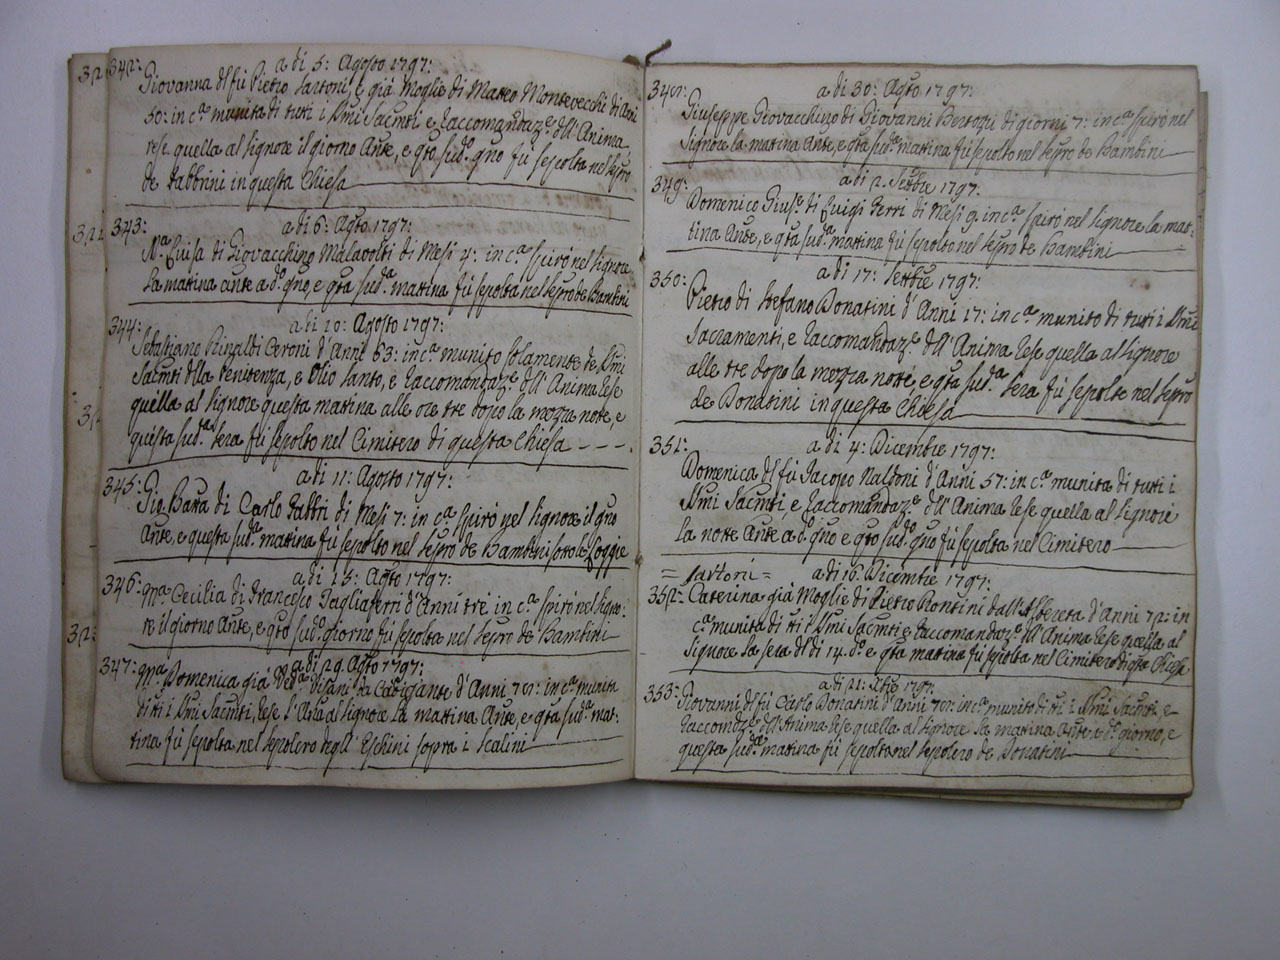 342: a di 5: Agosto 1797:
Giovanna del fù Pietro Sartoni, e già Moglie di Matteo Montevecchi di Anni
50: in cª munita di tutti i SSmi Sacmti e Raccomandazᵉ dell'Anima
rese quella al Signore il giorno Ante, e qto sudᵒ gno fù sepolta nel sepro
de Fabbrini in questa Chiesa
343: a di 6: Agto 1797:
Mª Luisa di Giovacchino Malavolti di Mesi 4: in cª spirò nel Signore
la matina ante a dᵒ gno, e qta sudª mattina fù sepolta nel sepro de Bambini
344: a di 10: Agosto 1797:
Sebastiano Rinaldi Ceroni d'Anni 63: in cª munito solamente de SSmi
Sacmti della Penitenza, e Olio Santo, e Raccomandazᵉ dell'Anima rese
quella al Signore questa matina alle ore tre dopo la mezza notte, e
questa sudª sera fù sepolto nel Cimitero di questa Chiesa - - -
345: a di 11: Agosto 1797:
Gio. Batta di Carlo Fabbri di Mesi 7: in cª spirò nel Signore il gno
Ante, e questa sudª mattina fù sepolto nel sepro de Bambini sotto le Loggie
346: a di 15: Agsto 1797:
Mª Cecilia di Francesco Tagliaferri d'Anni tré in cª spirò nel Signo:
re il giorno Ante, e qto sudᵒ giorno fù sepolta nel sepro de Bambini
347: a di 29. Agsto 1797:
Mª Domenica già Vedª di Santi da Cadigante d'Anni 78: in cª munita
di tti i SSmi Sacmti, rese l'Ana al Signore la mattina Ante, e qta sudª mat:
tina fù sepolta nel sepolcro degl' Eschini sopra i Scalini
348: a di 30: Agsto 1797:
Giuseppe Giovacchino di Giovanni Bertozzi di giorni 7: in cª spirò nel
Signore la matina Ante, e qta sudª mattina fù sepolto nel sepro de Bambini
349: a di 2. Settbre 1797:
Domenico Giusᵉ di Luigi Ferri di Mesi 9. in cª spirò nel Signore la mat:
tina Ante, e qta sudª matina fù sepolto nel sepro de Bambini
350: a di 17: Settbre 1797:
Pietro di Stefano Donatini d'Anni 17: in cª munito di tutti i SSmi
Sacramenti, e Raccomandazᵉ dell'Anima rese quella al Signore
alle tre dopo la mezza notte e qta sudª sera fù sepolto nel sepro
de Donatini in questa Chiesa
351: a di 4: Dicembre 1797:
Domenica del fù Jacopo Naldoni d'Anni 57: in cª munita di tutti i
SSmi Sacmti, e Raccomandazᵉ dell'Anima rese quella al Signore
la notte Ante a dᵒ gno e qto sudᵒ gno fù sepolta nel Cimitero
= Sartoni = a di 16. Dicembre 1797:
352: Caterina già Moglie di Pietro Pontini dall'Albereta d'Anni 72: in
cª munita di tti i SSmi Sacmti e Raccomandazᵉ dell'Anima rese quella al
Signore la sera del di 14. dᵒ e qta mattina fù sepolta nel Cimitero di qta Chiesa
353: a di 21: Xbre 1797:
Giovanni del fù Carlo Donatini d'Anni 78: in cª munito di tti i SSmi Sacmti, e
Raccomdazᵉ dell'Anima rese quella al Signore la matina Ante a dᵒ giorno, e
questa sudª mattina fù sepolto nel sepolcro de Donatini